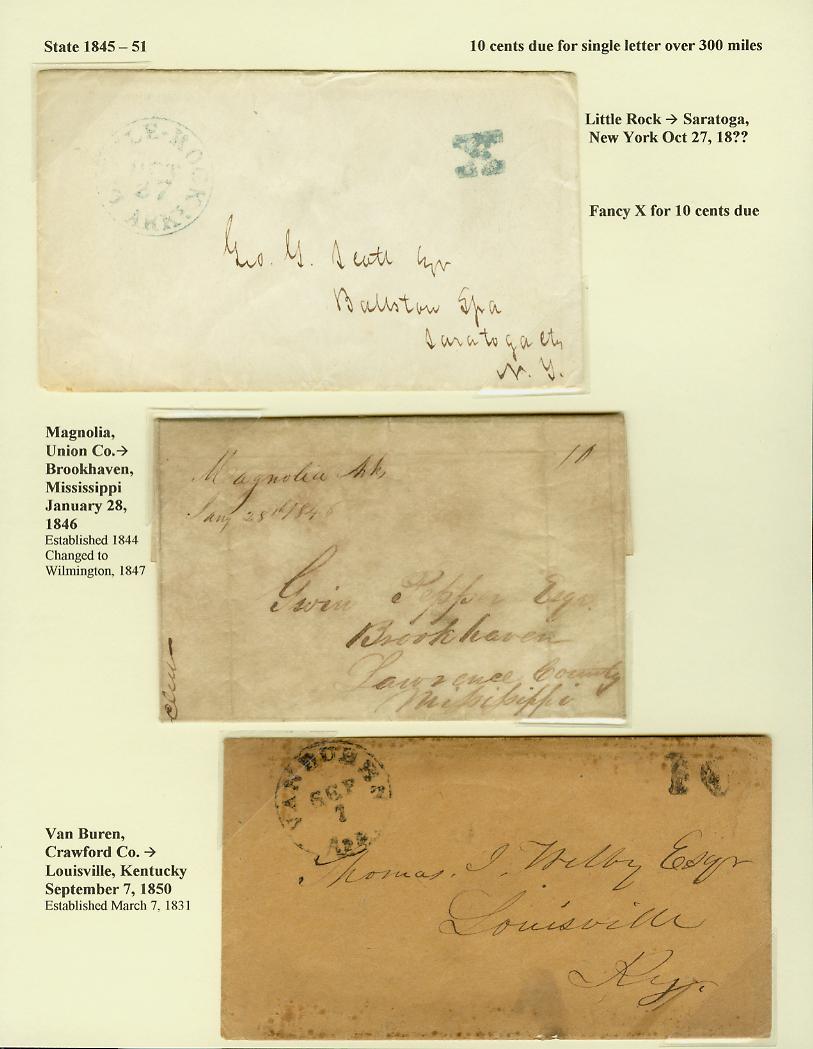 State 1845 – 51
10 cents due for single letter over 300 miles
Little Rock → Saratoga,
New York Oct 27, 18??
Fancy X for 10 cents due
27
ARK
X
Geo. G. Scott Esqr
Ballston Spa
Saratoga Cty
N. Y.
Magnolia,
Union Co.→
Brookhaven,
Mississippi
January 28,
1846
Established 1844
Changed to
Wilmington, 1847
Magnolia Ark
Jany 28th 1846
10
Gwin Pepper Esqr.
Brookhaven
Lawrence County
Mississippi
Van Buren,
Crawford Co. →
Louisville, Kentucky
September 7, 1850
Established March 7, 1831
VAN BUREN
SEP
7
ARK
10
Thomas. J. Welby Esqr
Louisville
Ky.